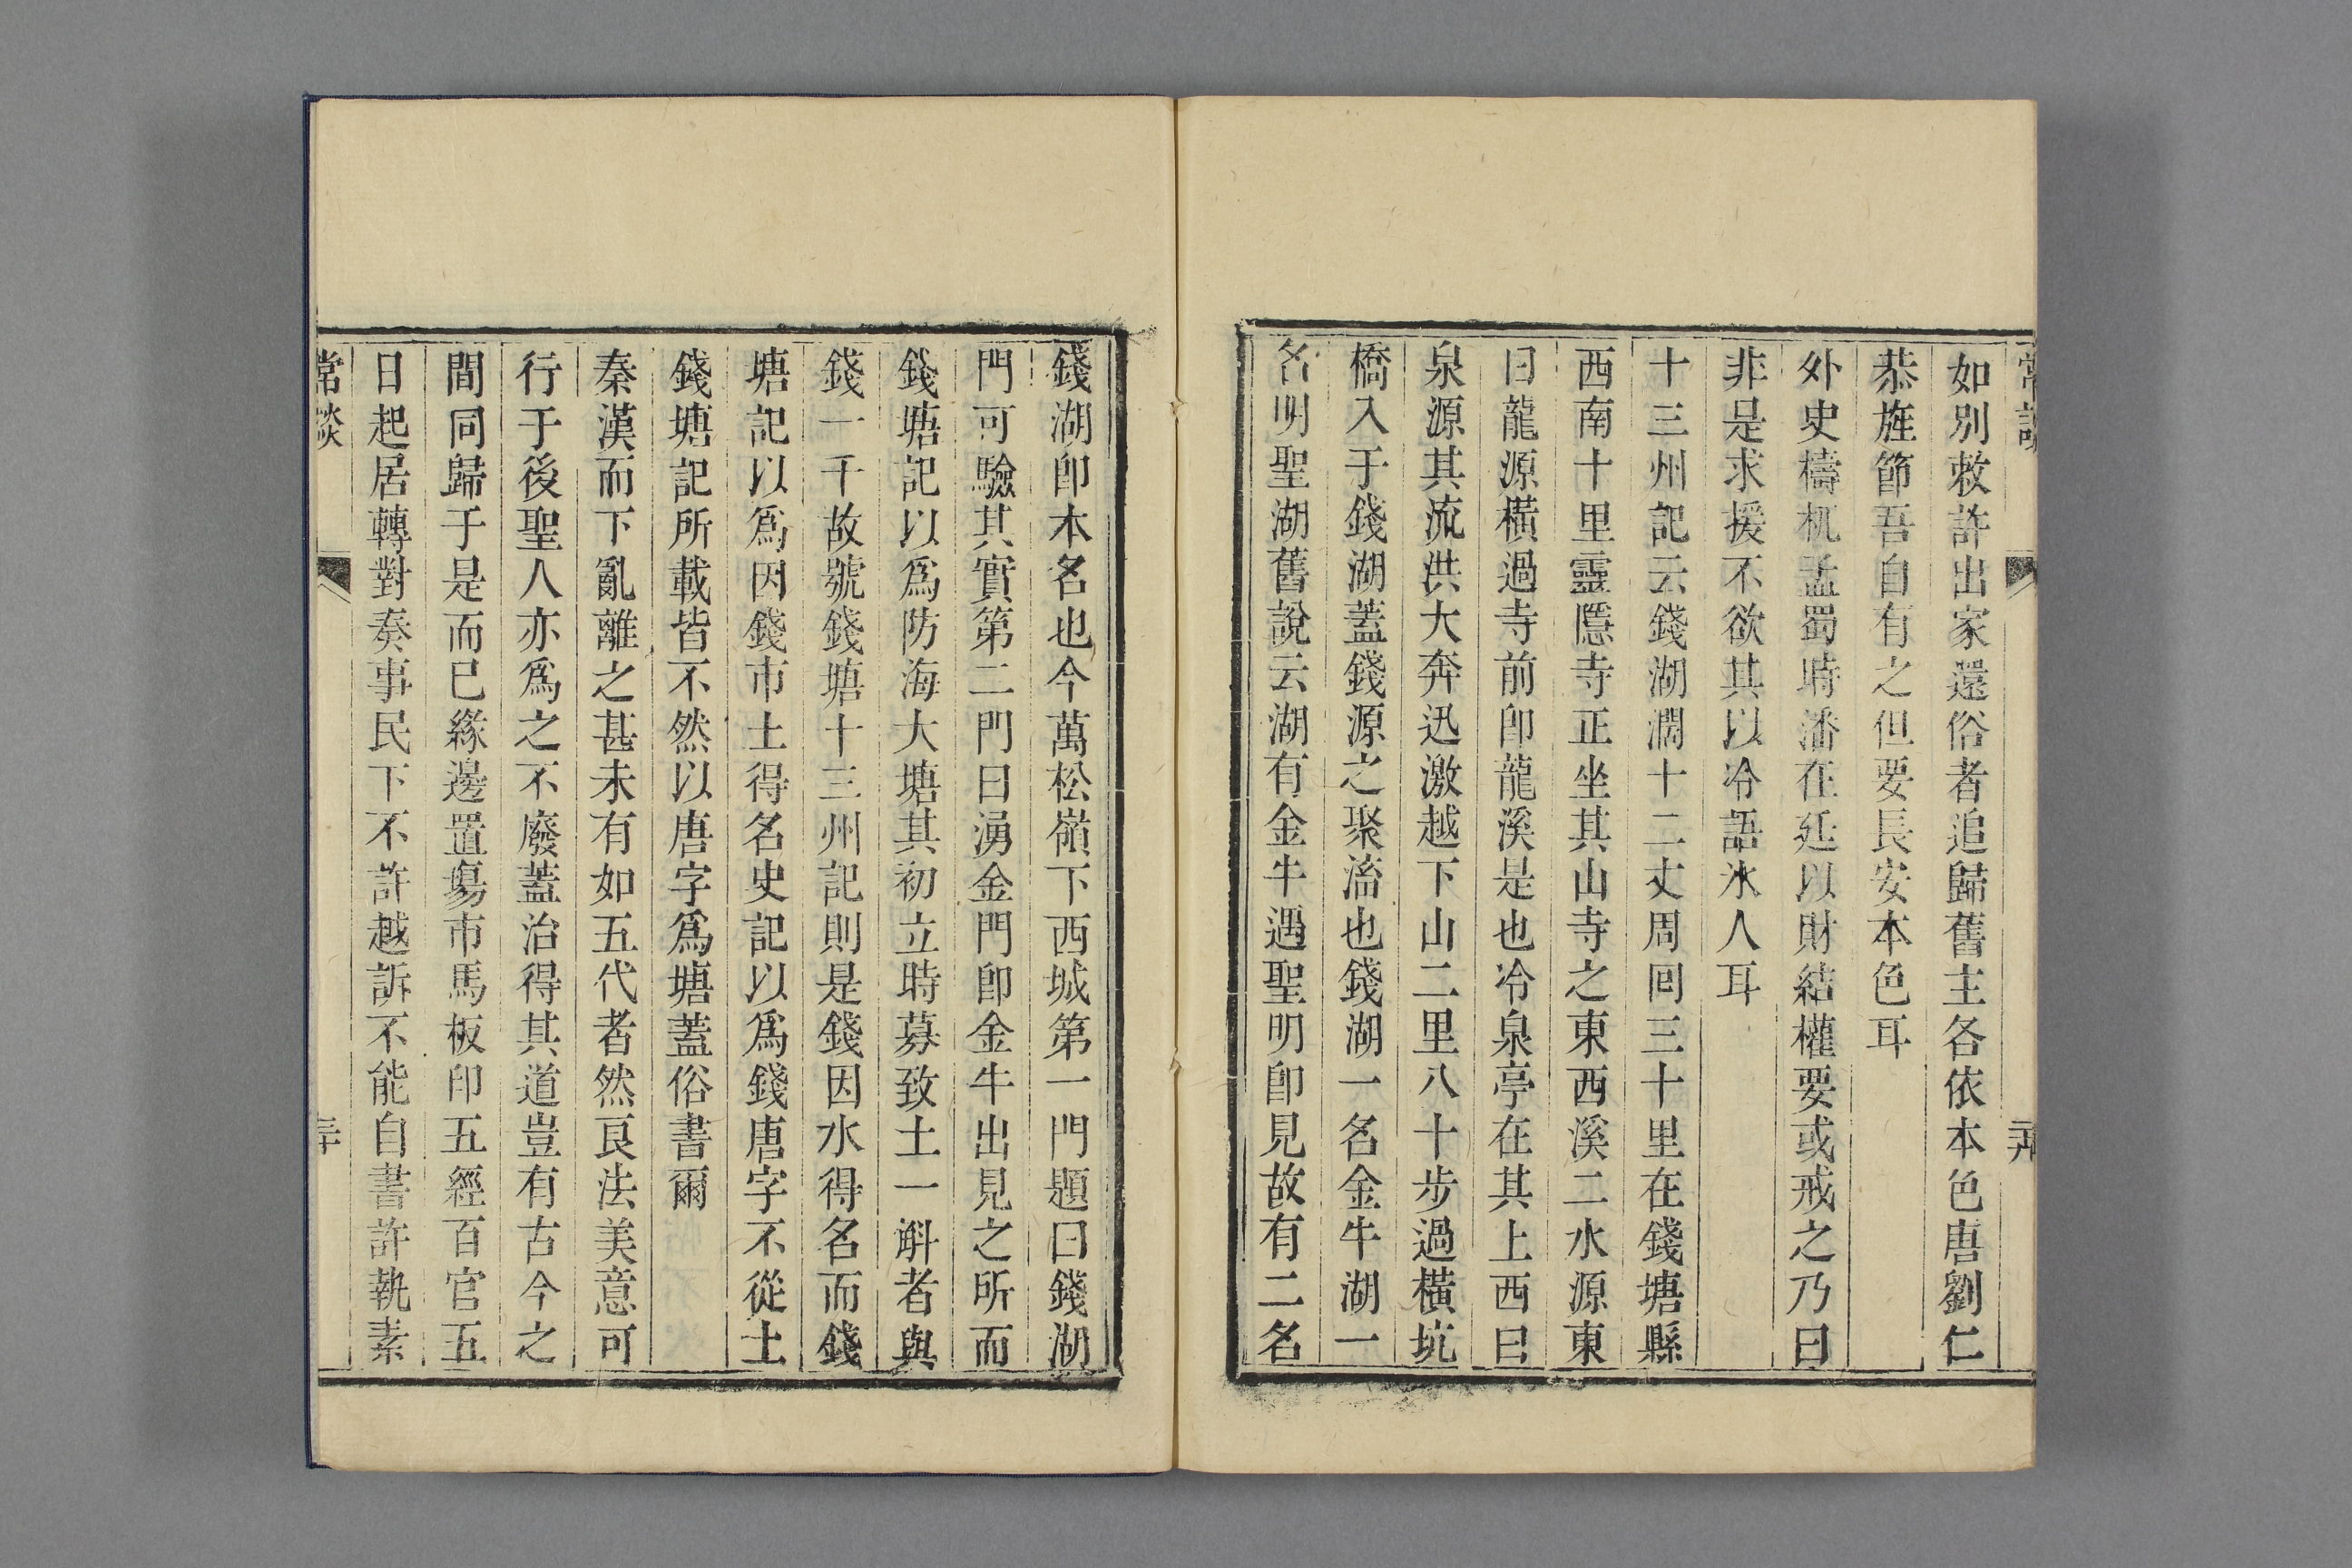 常談
如別敕許出家還俗者追歸舊主各依本色唐劉仁
恭旌節吾自有之但要長安本色耳
外史檮杌孟蜀時潘在廷以財結權要或戒之乃曰
非是求援不欲其以冷語氷人耳
十三州記云錢湖濶十二丈周回三十里在錢塘縣
西南十里靈隱寺正坐其山寺之東西溪二水源東
曰龍源橫過寺前卽龍溪是也冷泉亭在其上西曰
泉源其流洪大奔迅激越下山二里八十步過橫坑
橋入于錢湖蓋錢源之聚滀也錢湖一名金牛湖一
名明聖湖舊說云湖有金牛遇聖明卽見故有二名
錢湖卽本名也今萬松嶺下西城第一門題曰錢湖
門可驗其實第二門曰湧金門卽金牛出見之所而
錢塘記以爲防海大塘其初立時募致土一斛者與
錢一千故號錢塘十三州記則是錢因水得名而錢
塘記以爲因錢市土得名史記以爲錢唐字不從土
錢塘記所載皆不然以唐字爲塘蓋俗書爾
秦漢而下亂離之甚未有如五代者然良法美意可
行于後聖人亦爲之不廢蓋治得其道豈有古今之
間同歸于是而已緣邊置場市馬板印五經百官五
日起居轉對奏事民下不許越訴不能自書許執素
常談